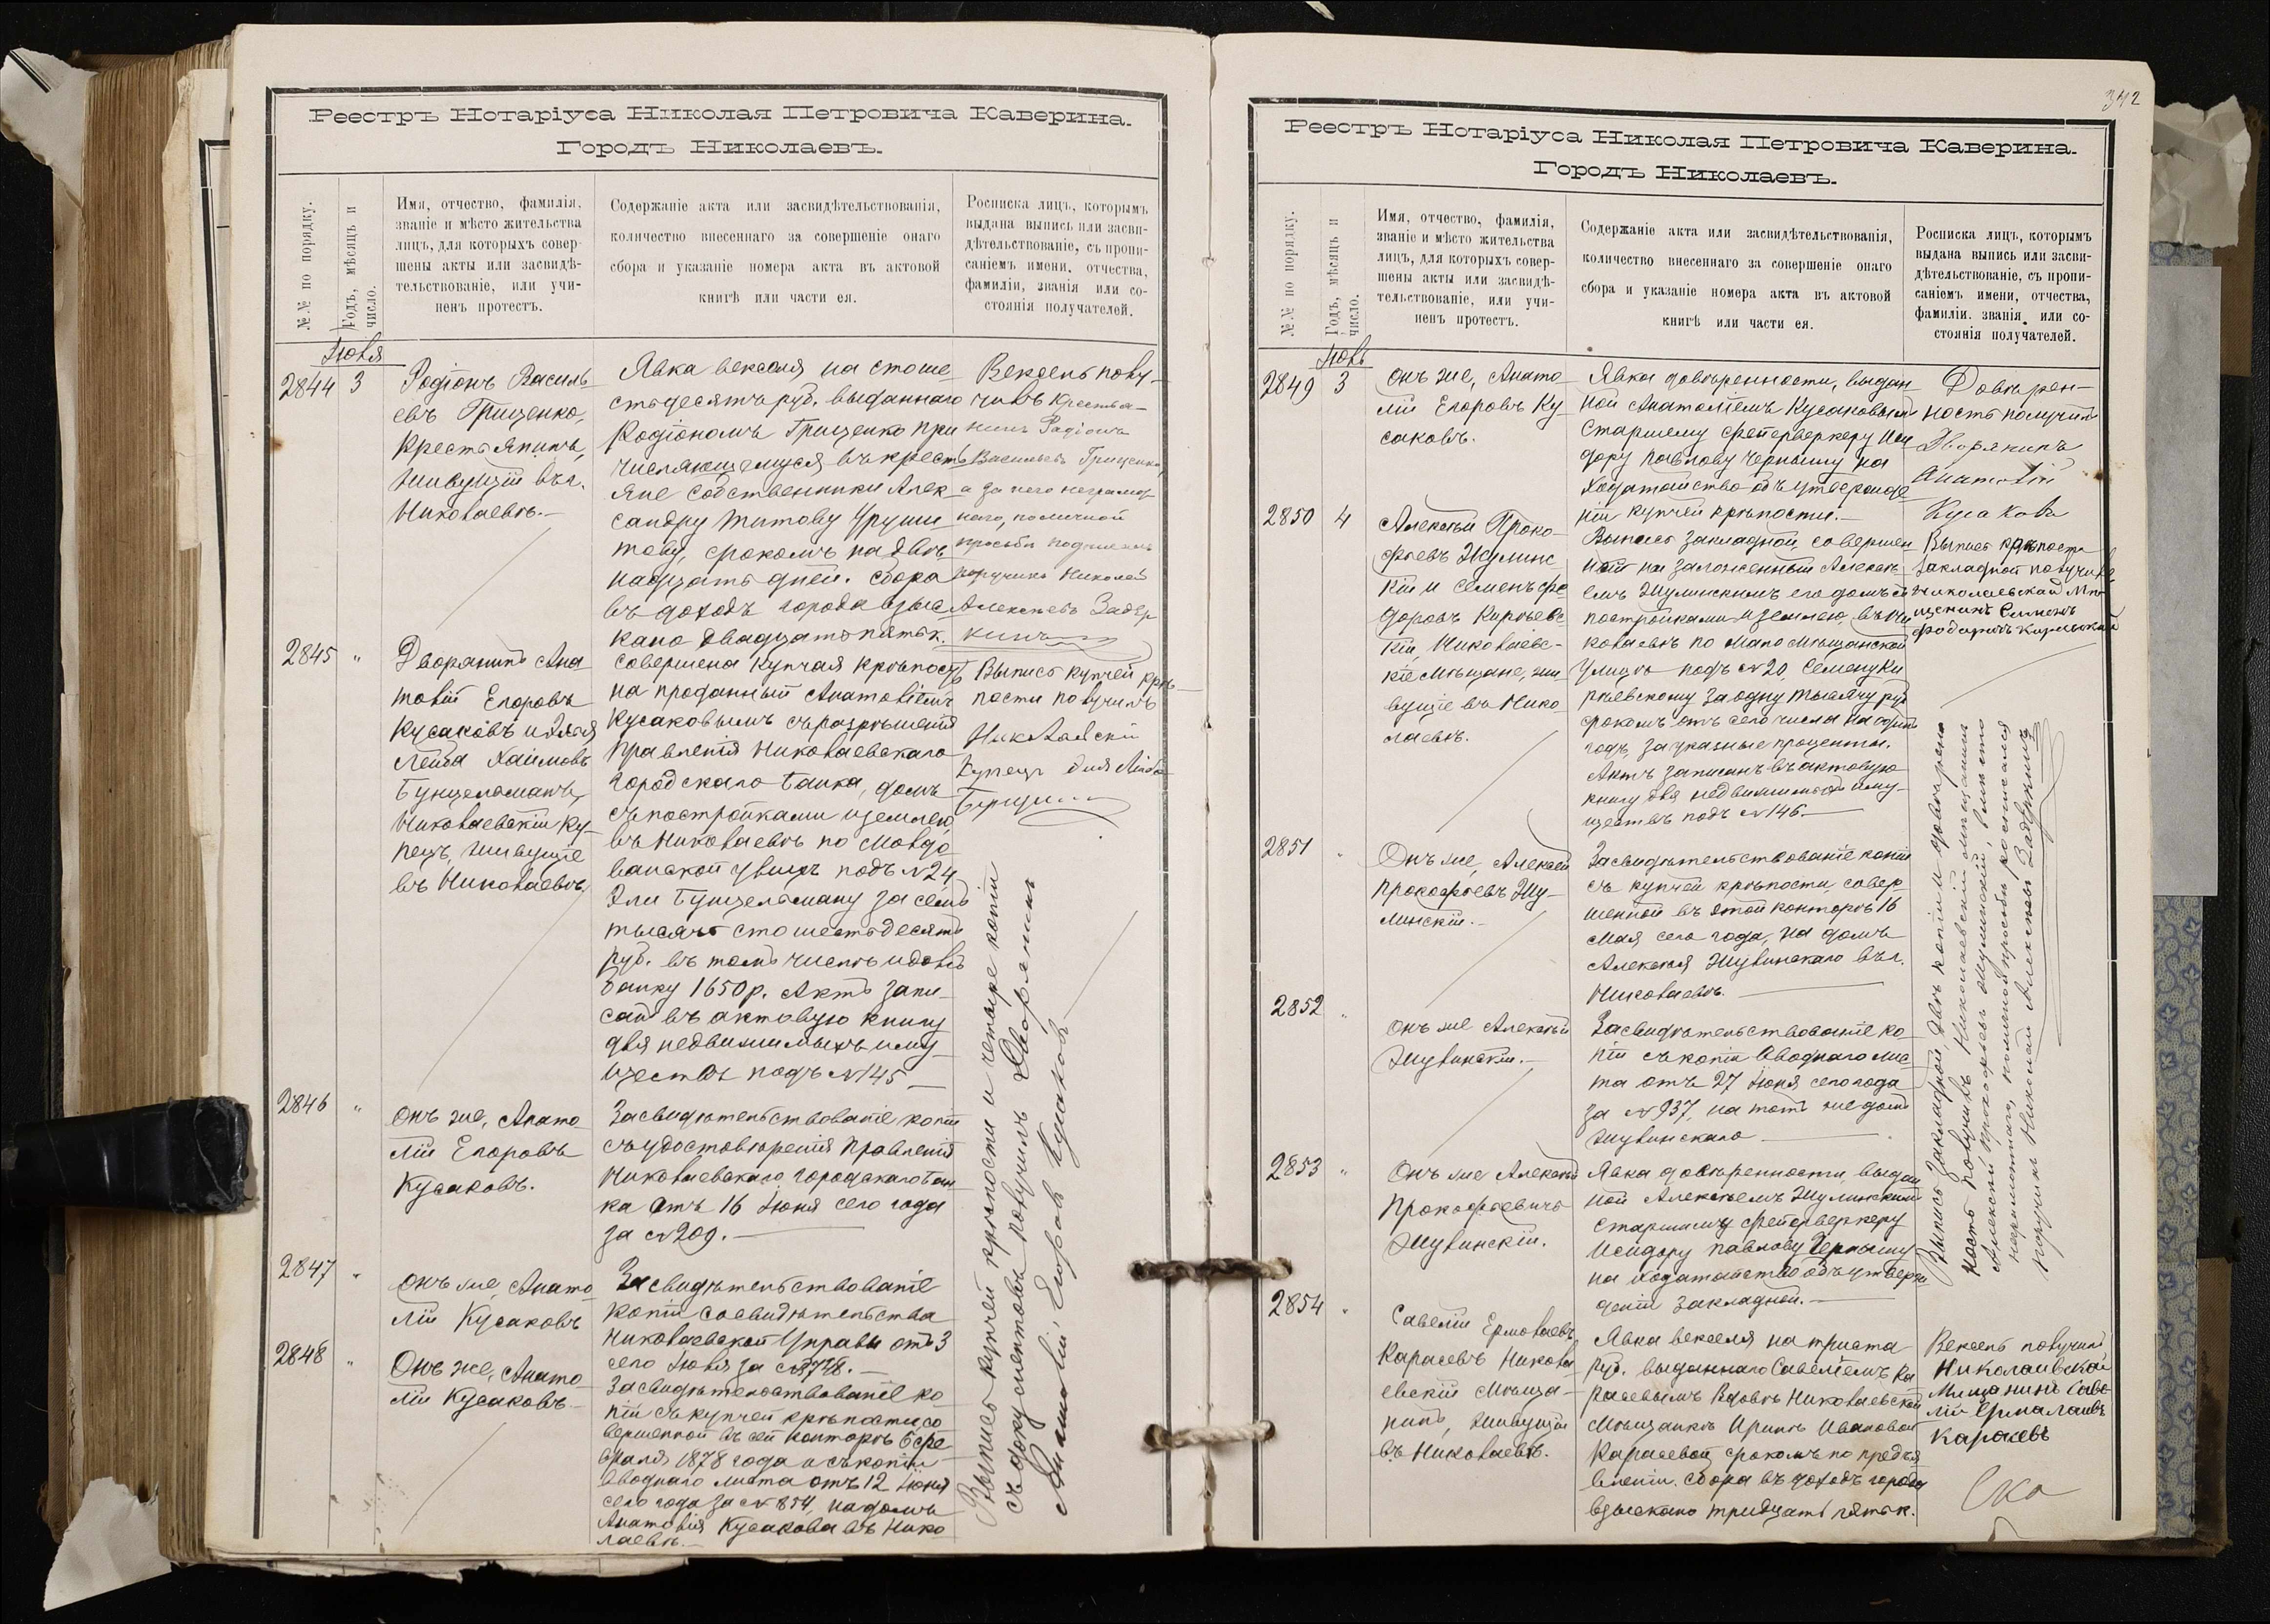 Реестръ Нотаріуса Николая Петровича Каверина.
Городъ Николаевъ.
№№ по порядку.
Годъ, мѣсяцъ и
число.
Имя, отчество, фамилія,
званіе и мѣсто жительства
лицъ, для которыхъ совер-
шены акты или засвидѣ-
тельствованіе, или учи-
ненъ протестъ.
Содержаніе акта или засвидѣтельствованія,
количество внесеннаго за совершеніе онаго
сбора и указаніе номера акта въ актовой
книгѣ или части ея.
Росписка лицъ, которымъ
выдана выпись или засви-
дѣтельствованіе, съ пропи-
саніемъ имени, отчества,
фамиліи, званія или со-
стоянія получателей.
Іюля
2844 3
Родіонъ Василь-
евъ Грищенко,
крестьянинъ,
живущій въ г.
Николаевѣ.-
Явка векселя на сто ше-
стьдесятъ руб. выданнаго
Родіономъ Грищенко при
числяющемуся въ крест
яне собственники Алек-
сандру Титову Уруши
тову, срокомъ на две
надцать дней. сбора
въ доходъ города взыс
кано двадцать пять к.
Вексель полу-
чилъ крестья-
нинъ Радіонъ
Васильевъ Грищенко,
а за него неграмот
наго, по личной
просьбѣ подписалъ
поручикъ Николай
Алексѣевъ Задер
кинъ
2845 "
Дворянинъ Ана-
толій Егоровъ
Кусаковъ и Эля
Лейба Хаимовъ
Бунцельманъ,
Николаевскій ку-
пецъ, живущіе
въ Николаевѣ,
Совершена купчая крѣпость
на проданный Анатоліемъ
Кусаковымъ съ разрѣшенія
Правленія Николаевскаго
Городскаго банка, домъ
съ постройками и землею,
въ Николаевѣ по Молда
ванской улицѣ подъ №24
Эли Бунцельману за семь
тысячъ сто шестьдесятъ
руб. въ томъ числѣ и долгъ
банку 1650 р. Актъ запи-
санъ въ актовую книгу
для недвижимыхъ иму-
ществъ подъ №145 —
Выпись купчей крѣ-
пости получилъ
Купецъ Эля Лейба
2846 "
Онъ же, Анато-
лій Егоровъ
Кусаковъ.
Засвидѣтельствованіе копіи
съ удостовѣренія Правленія
Николаевскаго городскаго бан
ка отъ 16 Іюня сего года
за №209.
2847 "
Онъ же, Анато-
лій Кусаковъ
Засвидѣтельствованіе
копіи свидѣтельства
Николаевской Управы отъ 3
сего Іюля за
2848 "
Онъ же, Анато-
лій Кусаковъ
Засвидѣтельствованіе ко-
піи съ купчей крѣпости со
вершенной въ сей конторѣ 6 фе-
враля 1878 года и съ копіи
вводнаго листа отъ 12 Іюня
сего года за №854, на домъ
Анатолія Кусакова въ Нико
лаевѣ.-
Выпись купчей крѣпости и четыре копіи
съ документовъ получилъ Дворянинъ
Анатолій Егоровъ Кусаковъ
342
Реестръ Нотаріуса Николая Петровича Каверина.
Городъ Николаевъ.
№№ по порядку.
Годъ, мѣсяцъ и
число.
Имя, отчество, фамилія,
званіе и мѣсто жительства
лицъ, для которыхъ совер-
шены акты или засвидѣ-
тельствованіе, или учи-
ненъ протестъ.
Содержаніе акта или засвидѣтельствованія,
количество внесеннаго за совершеніе онаго
сбора и указаніе номера акта въ актовой
книгѣ или части ея.
Росписка лицъ, которымъ
выдана выпись или засви-
дѣтельствованіе, съ пропи-
саніемъ имени, отчества,
фамиліи. званія. или со-
стоянія получателей.
Іюль
2849 3
Онъ же, Анато-
лій Егоровъ Ку
саковъ.
Явка довѣренности, выдан
ной Анатоліемъ Кусаковымъ
Старшему Фейерверкеру Иси
дору Павлову Чернышу на
ходатайство объ утвержде
ніи купчей крѣпости.-
Довѣрен-
ность получилъ
Дворянинъ
Анатолій
Кусаковъ
2850 4
Алексѣй Проко-
фьевъ Жулинс-
кій и Семенъ Фе
доровъ Кирьевс
кій, Николаевс-
кіе Мѣщане, жи
вущіе въ Нико-
лаевѣ.
Выпись закладной, совершен
ной на заложенный Алексѣ-
емъ Жулинскимъ его домъ съ
постройками и землею, въ Ни
колаевѣ по Мало Мѣщанской
улицѣ подъ №20, Семену Ки
рьевскому за одну тысячу руб
срокомъ отъ сего числа на одинъ
годъ, за указные проценты.
Актъ записанъ въ актовую
книгу для недвижимыхъ иму-
ществъ подъ №146.—
Выпись крѣпости
закладной получилъ
Николаевскай Мѣ
щенинъ Семенъ
2851 "
Онъ же, Алексѣй
Прокофьевъ Жу-
линскій.-
Засвидѣтельствованіе копіи
съ купчей крѣпости, совер-
шенной въ этой конторѣ 16
Мая сего года, на домъ
Алексѣя Жулинскаго въ г.
Николаевѣ.
2852 "
Онъ же Алексѣй
Жулинскій.-
Засвидѣтельствованіе ко-
піи съ копіи вводнаго лис-
та отъ 27 Іюня сего года
за №937, на тотъ же домъ
Жулинскаго
2853 "
Онъ же Алексѣй
Прокофьевичъ
Жулинскій.
Явка довѣренности, выдан
ной Алексѣемъ Жулинскимъ
Старшему Фейерверкеру
Исидору Павлову Чернышу
на ходатайство объ утверж-
деніи закладной.—
Выпись закладной, двѣ копіи и довѣрен
ность получилъ Николаевскій мѣщанинъ
Алексѣй Прокофьевъ Жулинскій, а вмѣсто
неграмотнаго, по личной просьбѣ росписался
поручикъ Николай Алексѣевъ Задеркинъ
2854 "
Савелій Ермолаевъ
Карасевъ Никола
евскій Мѣща-
нинъ, живущій
въ Николаевѣ.
Явка векселя на триста
руб. выданнаго Савеліемъ Ка
расевымъ Вдовѣ Николаевской
Мѣщанкѣ Иринѣ Ивановой
Карасевой срокомъ по предъя
вленіи. сбора въ доходъ города
взыскано тридцать пять к.
Вексель получилъ
Николаивскай
Мищанинъ Саве
лій Ермалаивъ
Карасевъ